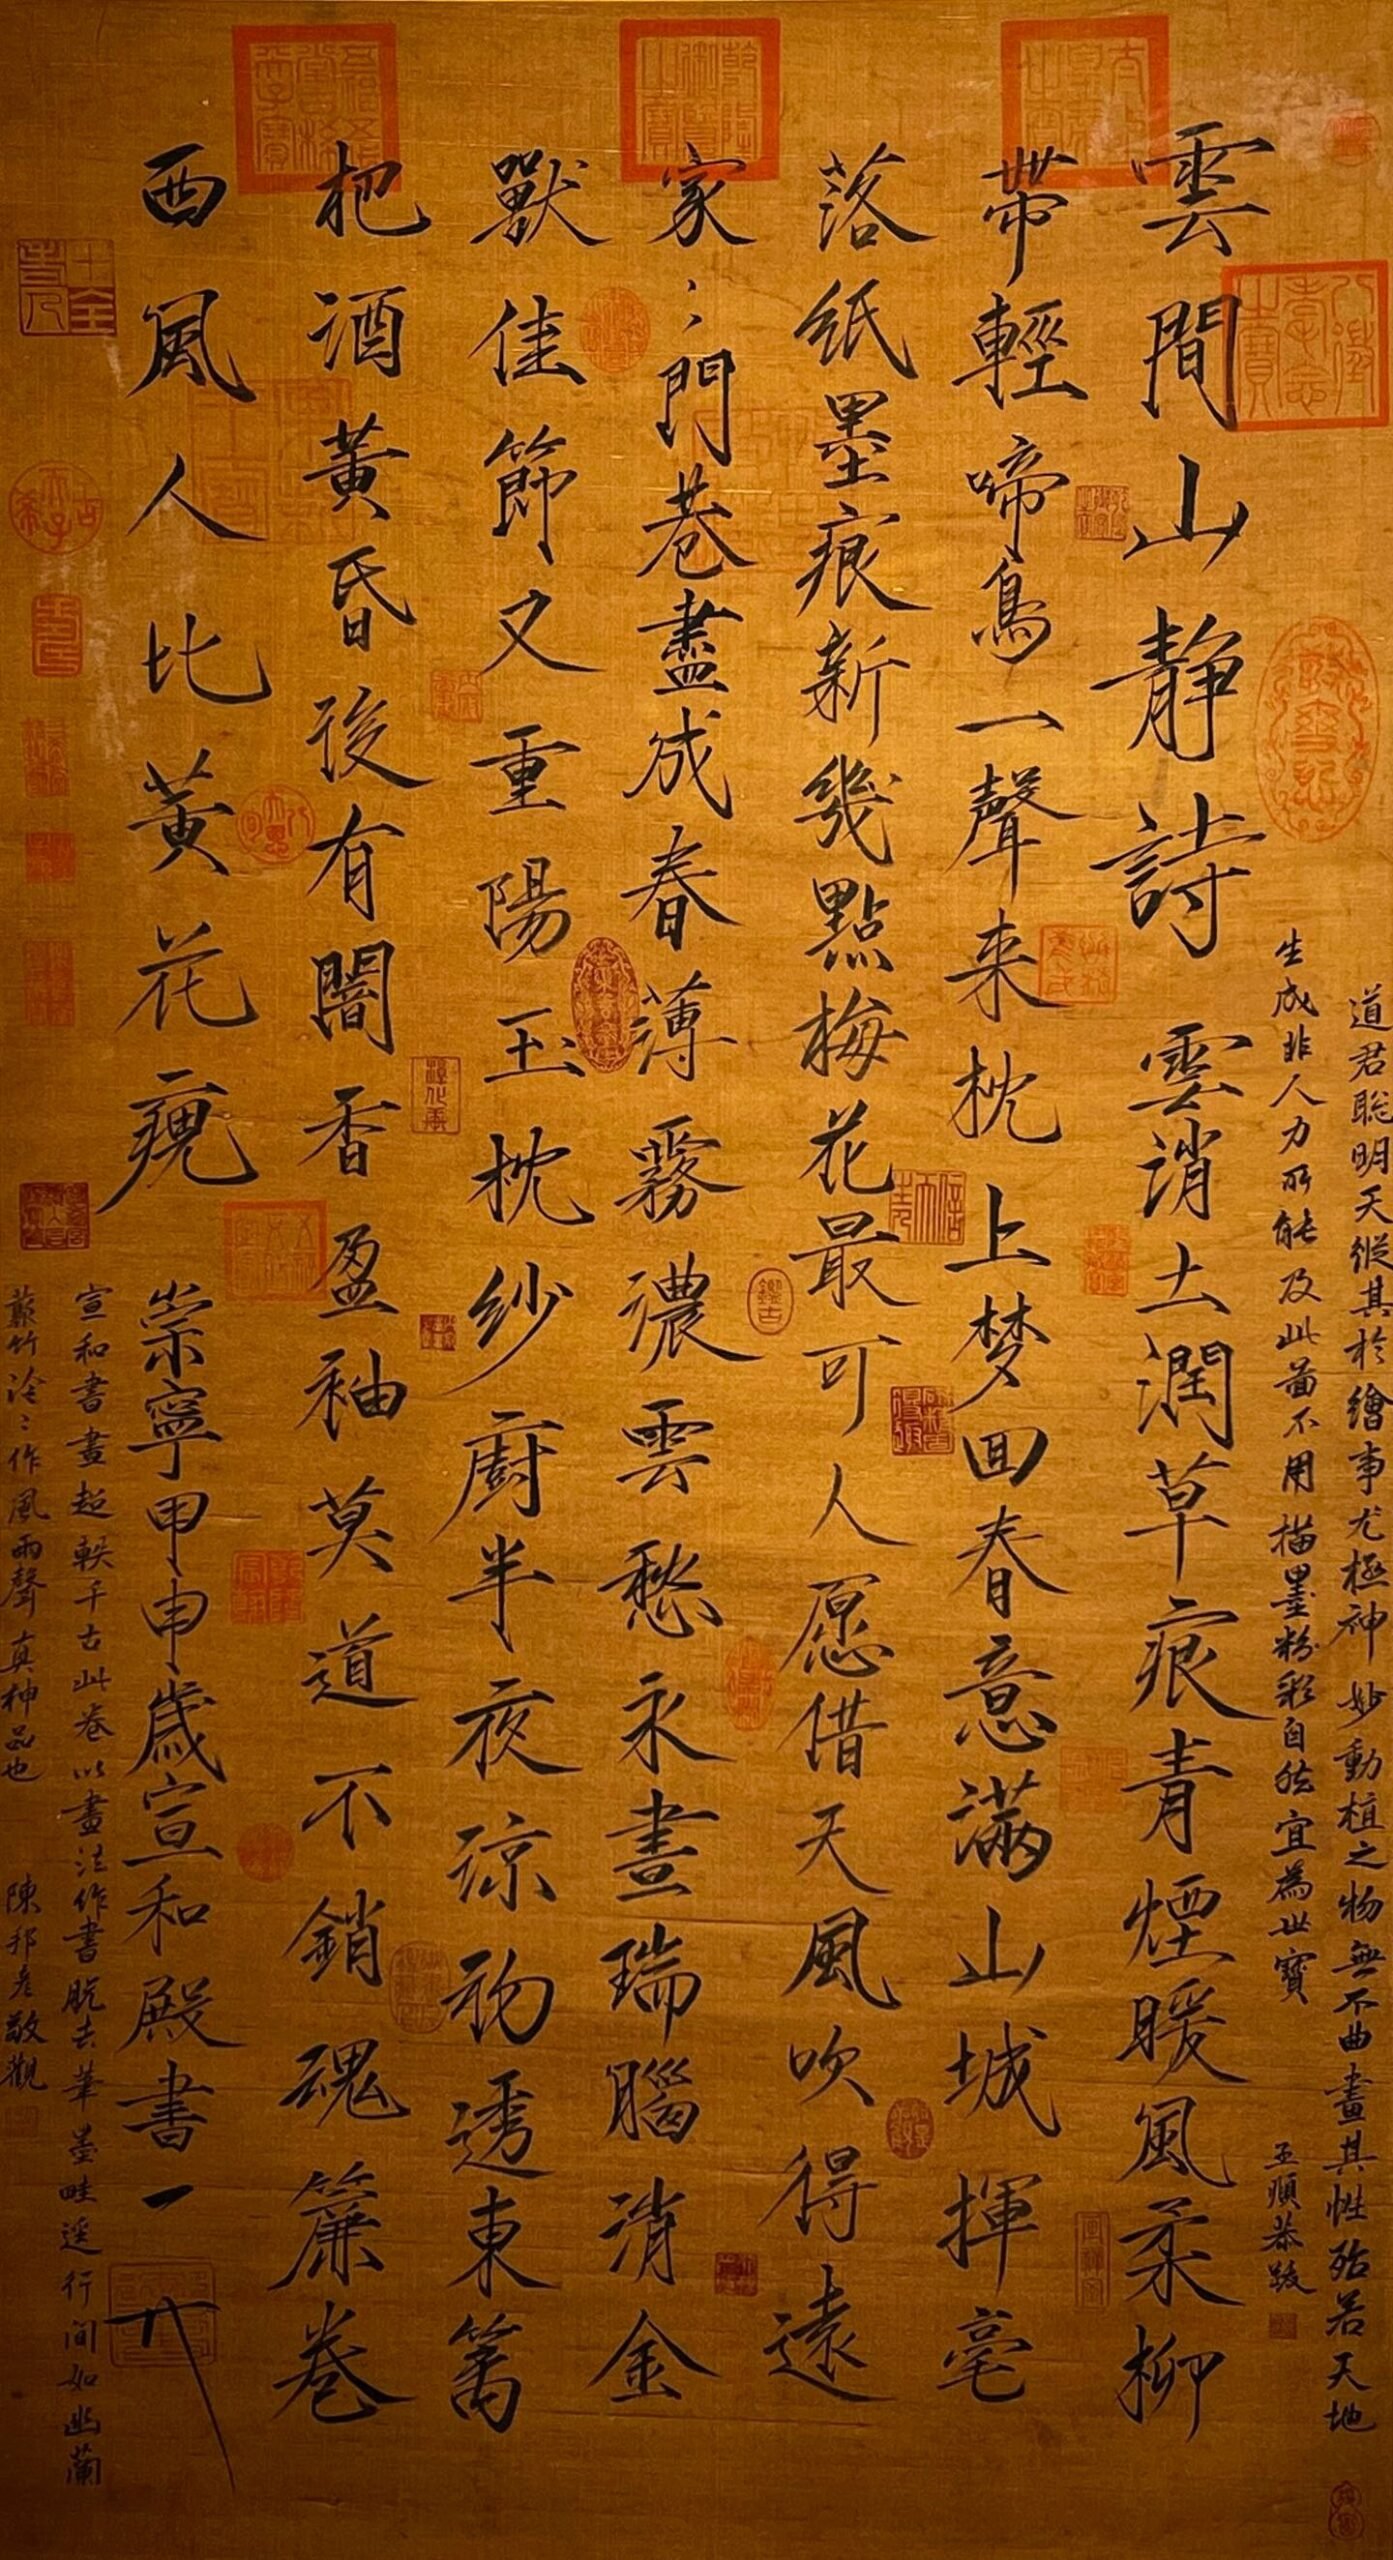 道君聡明天縱其於繪事尤極神妙動植之物無不曲畫其性殆若天地
生成非人力所能及此圖不用描墨粉彩自然宜為世寳
王順恭跋
雲間山靜詩 雲消土潤草痕青煙暖風柔柳
帶輕啼鳥一聲来枕上梦回春意滿山城揮毫
落紙墨痕新幾點梅花最可人愿借天風吹得遠
家〻門巷盡成春薄霧濃雲愁永晝瑞腦消金
獸佳節又重陽玉枕紗廚半夜涼初透東篱
把酒黃昏後有闇香盈袖莫道不銷魂簾卷
西風人比黃花瘦
崇寧甲申歲宣和殿書一
宣和書畫超軼千古此卷以畫法作書脫去筆墨畦逕行间如幽蘭
叢竹泠〻作風雨聲真神品也 陳邦彦敬觀